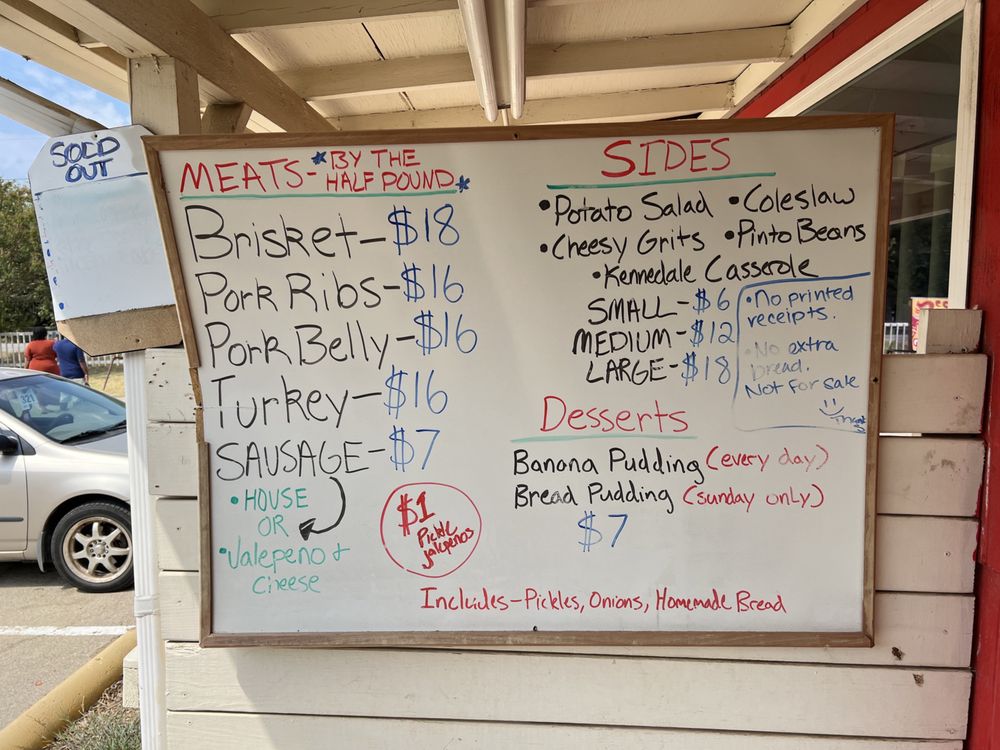 SOLD
OUT
MEATS-*BY THE
HALF POUND*
Brisket-$18
Pork Ribs-$16
Pork Belly-$16
Turkey-$16
SAUSAGE-$7
•HOUSE
OR
•Jalepeno &
Cheese
$1
Pickle
jalepenos
SIDES
•Potato Salad •Coleslaw
•Cheesy Grits •Pinto Beans
•Kennedale Casserole
SMALL-$6
MEDIUM-$12
LARGE-$18
•No printed
receipts.
•No extra
bread.
Not for sale
Thanks
Desserts
Banana Pudding (every day)
Bread Pudding (sunday only)
$7
Includes-Pickles, Onions, Homemade Bread
321